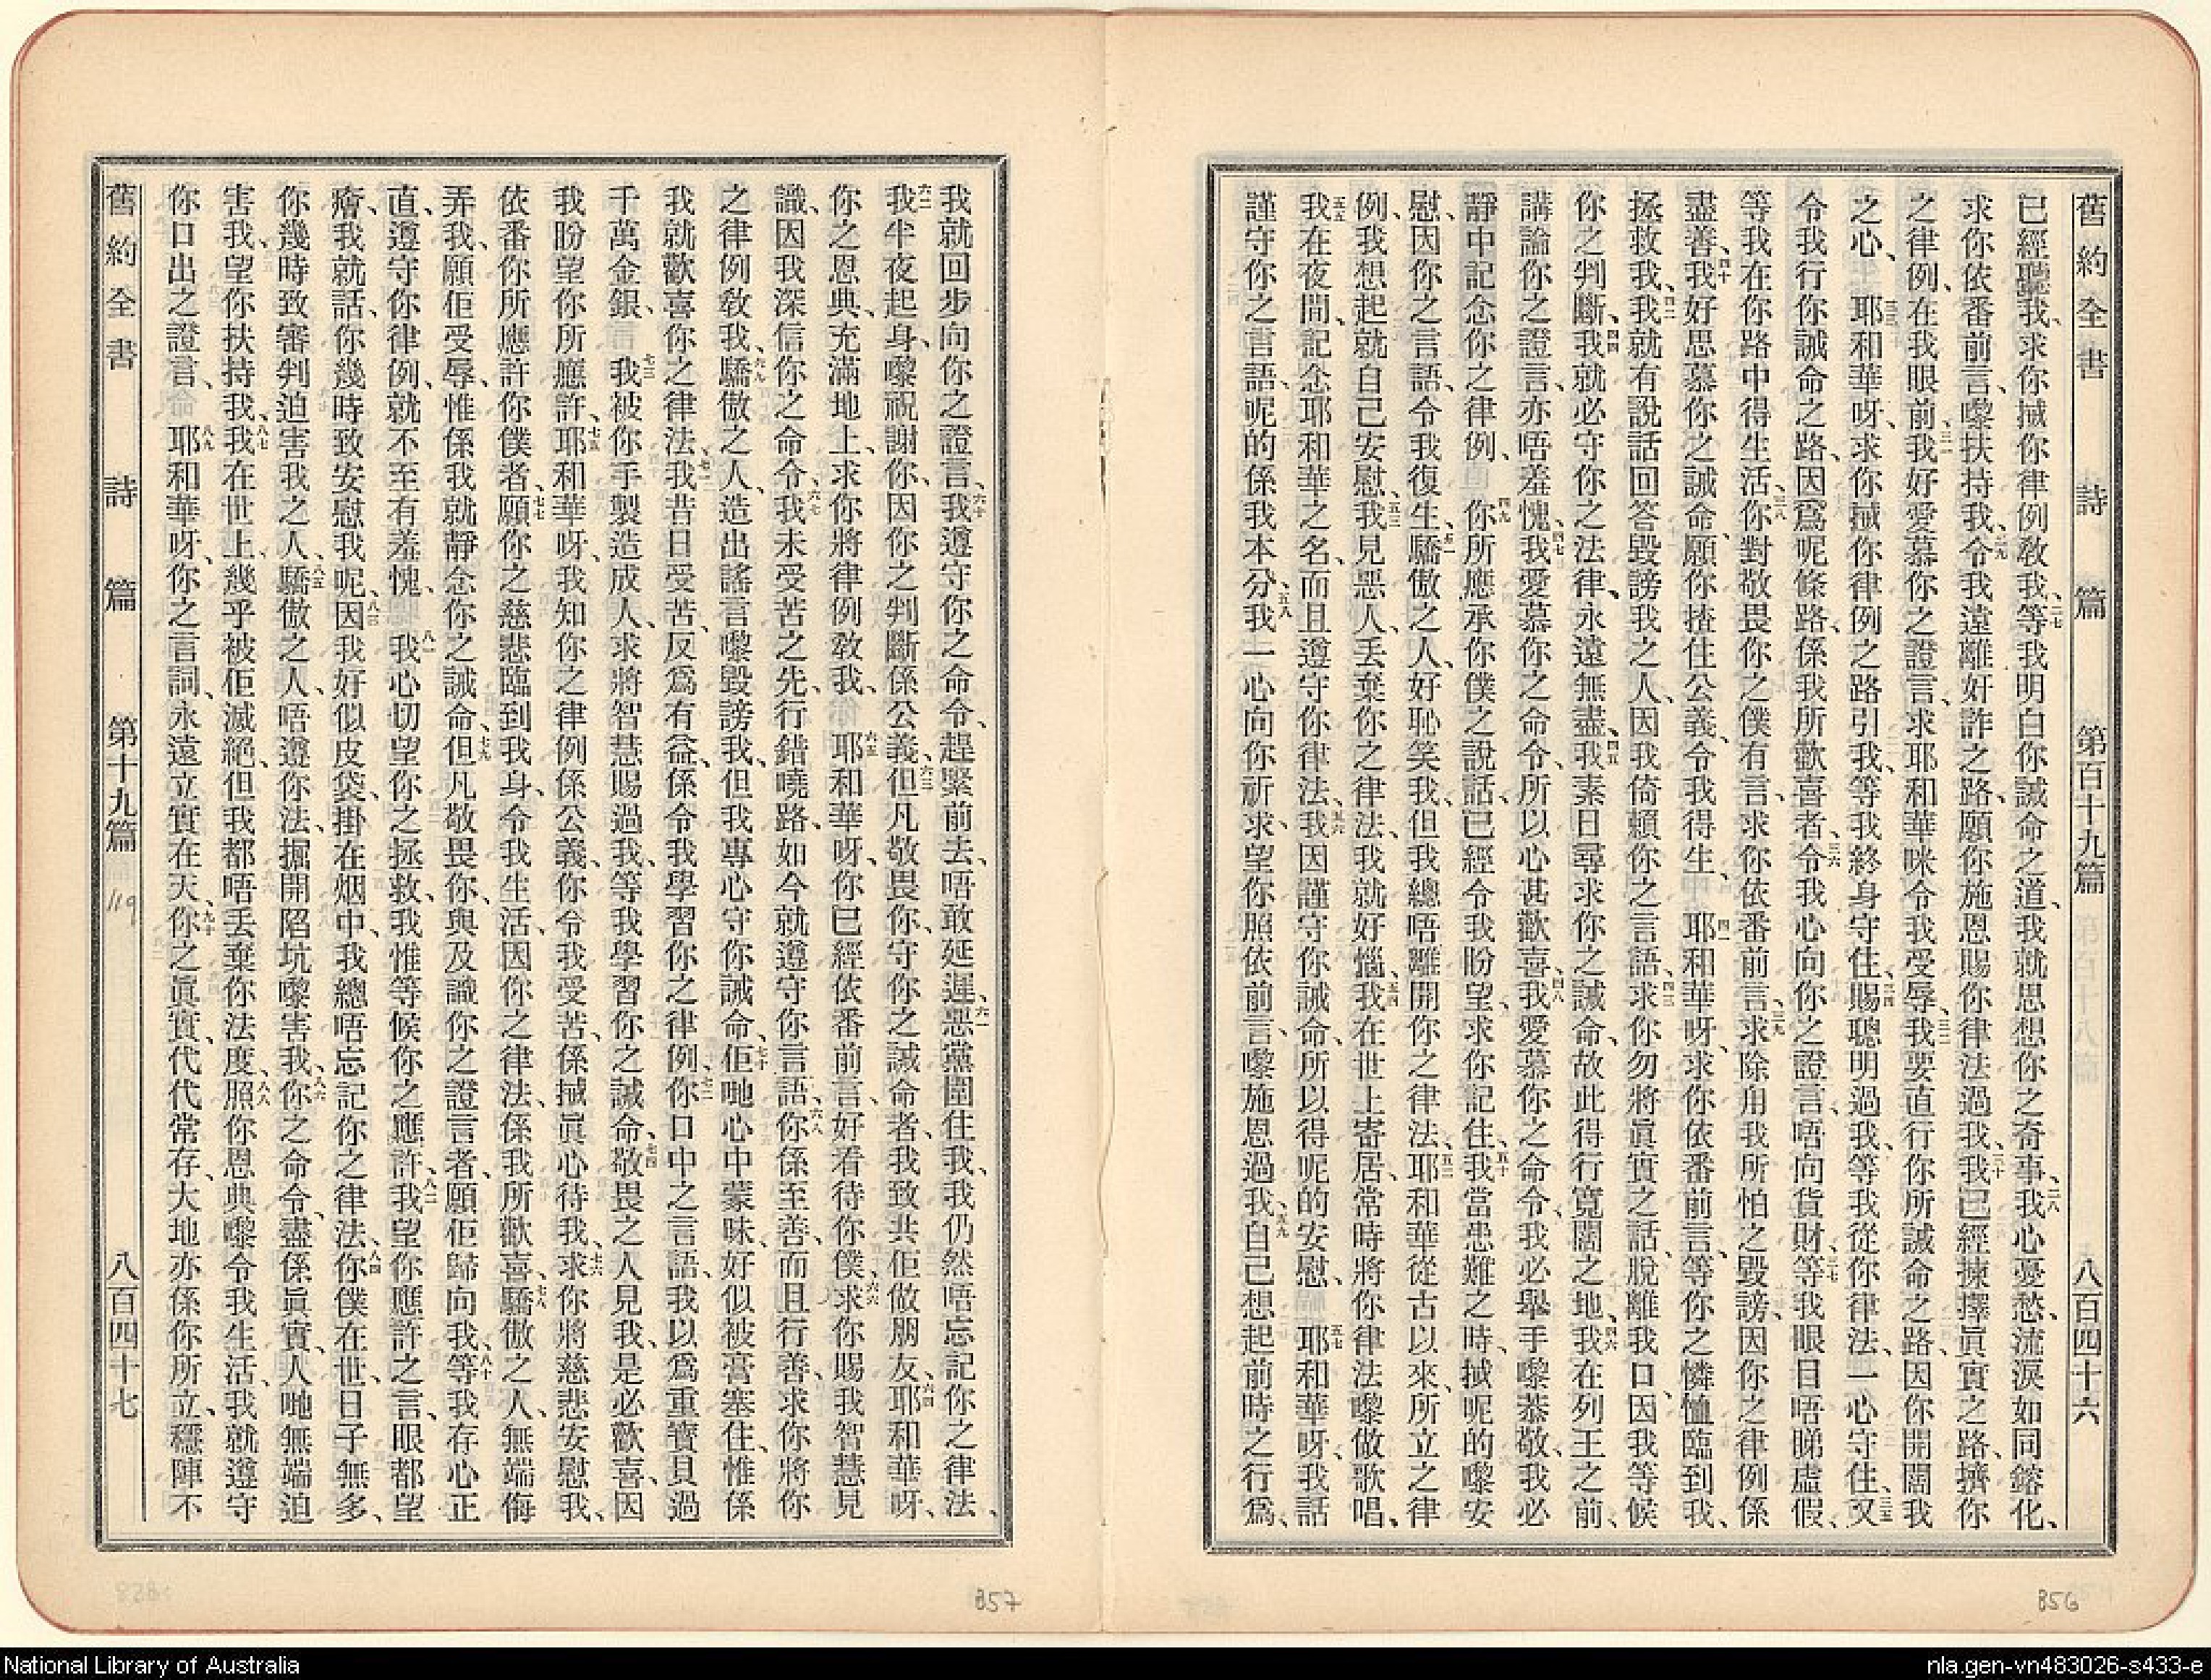 舊約全書 詩篇 第百十九篇 八百四十六
已經聽我、求你搣你律例教我、二七等我明白你誡命之道、我就思想你之奇事、二八我心憂愁、流淚如同鎔化、
求你依番前言、嚟扶持我、二九令我遠離奸詐之路、願你施恩賜你律法過我、三十我已經揀擇眞實之路、擠你
之律例、在我眼前、三一我好愛慕你之證言、求耶和華咪令我受辱、三二我要直行你所誡命之路、因你開闊我
之心、 三三耶和華呀、求你搣你律例之路引我、等我終身守住、三四賜聰明過我、等我從你律法、一心守住、三五又
令我行你誡命之路、因爲呢條路、係我所歡喜者、三六令我心向你之證言、唔向貨財、三七等我眼目唔睇虛假、
等我在你路中得生活、三八你對敬畏你之僕有言、求你依番前言、三九求除用我所怕之毀謗、因你之律例係
盡善、四十我好思慕你之誡命、願你揸住公義、令我得生、 四一耶和華呀、求你依番前言、等你之憐恤臨到我、
拯救我、四二我就有說話回答毀謗我之人、因我倚賴你之言語、四三求你勿將眞實之話、脫離我口、因我等候
你之判斷、四四我就必守你之法律、永遠無盡、四五我素日尋求你之誡命、故此得行寬闊之地、四六我在列王之前、
講論你之證言、亦唔羞愧、四七我愛慕你之命令、所以心甚歡喜、四八我愛慕你之命令、我必舉手嚟恭敬、我必
靜中記念你之律例、 四九你所應承你僕之說話、已經令我盼望、求你記住、五十我當患難之時、搣呢的嚟安
慰、因你之言語、令我復生、五一驕傲之人、好恥笑我、但我總唔離開你之律法、五二耶和華從古以來、所立之律
例、我想起就自己安慰、五三我見惡人、丢棄你之律法、我就好惱、五四我在世上寄居、常時將你律法嚟做歌唱、
五五我在夜間、記念耶和華之名、而且遵守你律法、五六我因謹守你誡命、所以得呢的安慰、 五七耶和華呀、我話
謹守你之言語、呢的係我本分、五八我一心向你祈求、望你照依前言、嚟施恩過我、五九我自己想起前時之行爲、
我就回步向你之證言、六十我遵守你之命令、趕緊前去、唔敢延遲、六一惡黨圍住我、我仍然唔忘記你之律法、
六二我半夜起身、嚟祝謝你、因你之判斷係公義、六三但凡敬畏你、守你之誡命者、我致共佢做朋友、六四耶和華呀、
你之恩典、充滿地上、求你將律例教我、 六五耶和華呀、你已經依番前言、好看待你僕、六六求你賜我智慧見
識、因我深信你之命令、六七我未受苦之先、行錯嘵路、如今就遵守你言語、六八你係至善、而且行善、求你將你
之律例教我、六九驕傲之人、造出謠言嚟毀謗我、但我專心守你誡命、七十佢哋心中蒙昧、好似被膏塞住、惟係
我就歡喜你之律法、七一我昔日受苦、反爲有益、係令我學習你之律例、七二你口中之言語、我以爲重寶貝過
千萬金銀、 七三我被你手製造成人、求將智慧賜過我、等我學習你之誡命、七四敬畏之人見我、是必歡喜、因
我盼望你所應許、七五耶和華呀、我知你之律例係公義、你令我受苦、係搣眞心待我、七六求你將慈悲安慰我、
依番你所應許你僕者、七七願你之慈悲臨到我身、令我生活、因你之律法、係我所歡喜、七八驕傲之人、無端侮
弄我、願佢受辱、惟係我就靜念你之誡命、七九但凡敬畏你、與及識你之證言者、願佢歸向我、八十等我存心正
直、遵守你律例、就不至有羞愧、 八一我心切望你之拯救、我惟等候你之應許、八二我望你應許之言、眼都望
癐、我就話、你幾時致安慰我呢、八三因我好似皮袋、掛在烟中、我總唔忘記你之律法、八四你僕在世、日子無多、
你幾時致審判迫害我之人、八五驕傲之人、唔遵你法、掘開陷坑嚟害我、八六你之命令、盡係眞實、人哋無端迫
害我、望你扶持我、八七我在世上、幾乎被佢滅絕、但我都唔丢棄你法度、八八照你恩典嚟令我生活、我就遵守
你口出之證言、 八九耶和華呀、你之言詞、永遠立實在天、九十你之眞實、代代常存、大地亦係你所立、穩陣不
舊約全書 詩篇 第十九篇 119 八百四十七
857
856
National Library of Australia
nla.gen-vn483026-s433-e